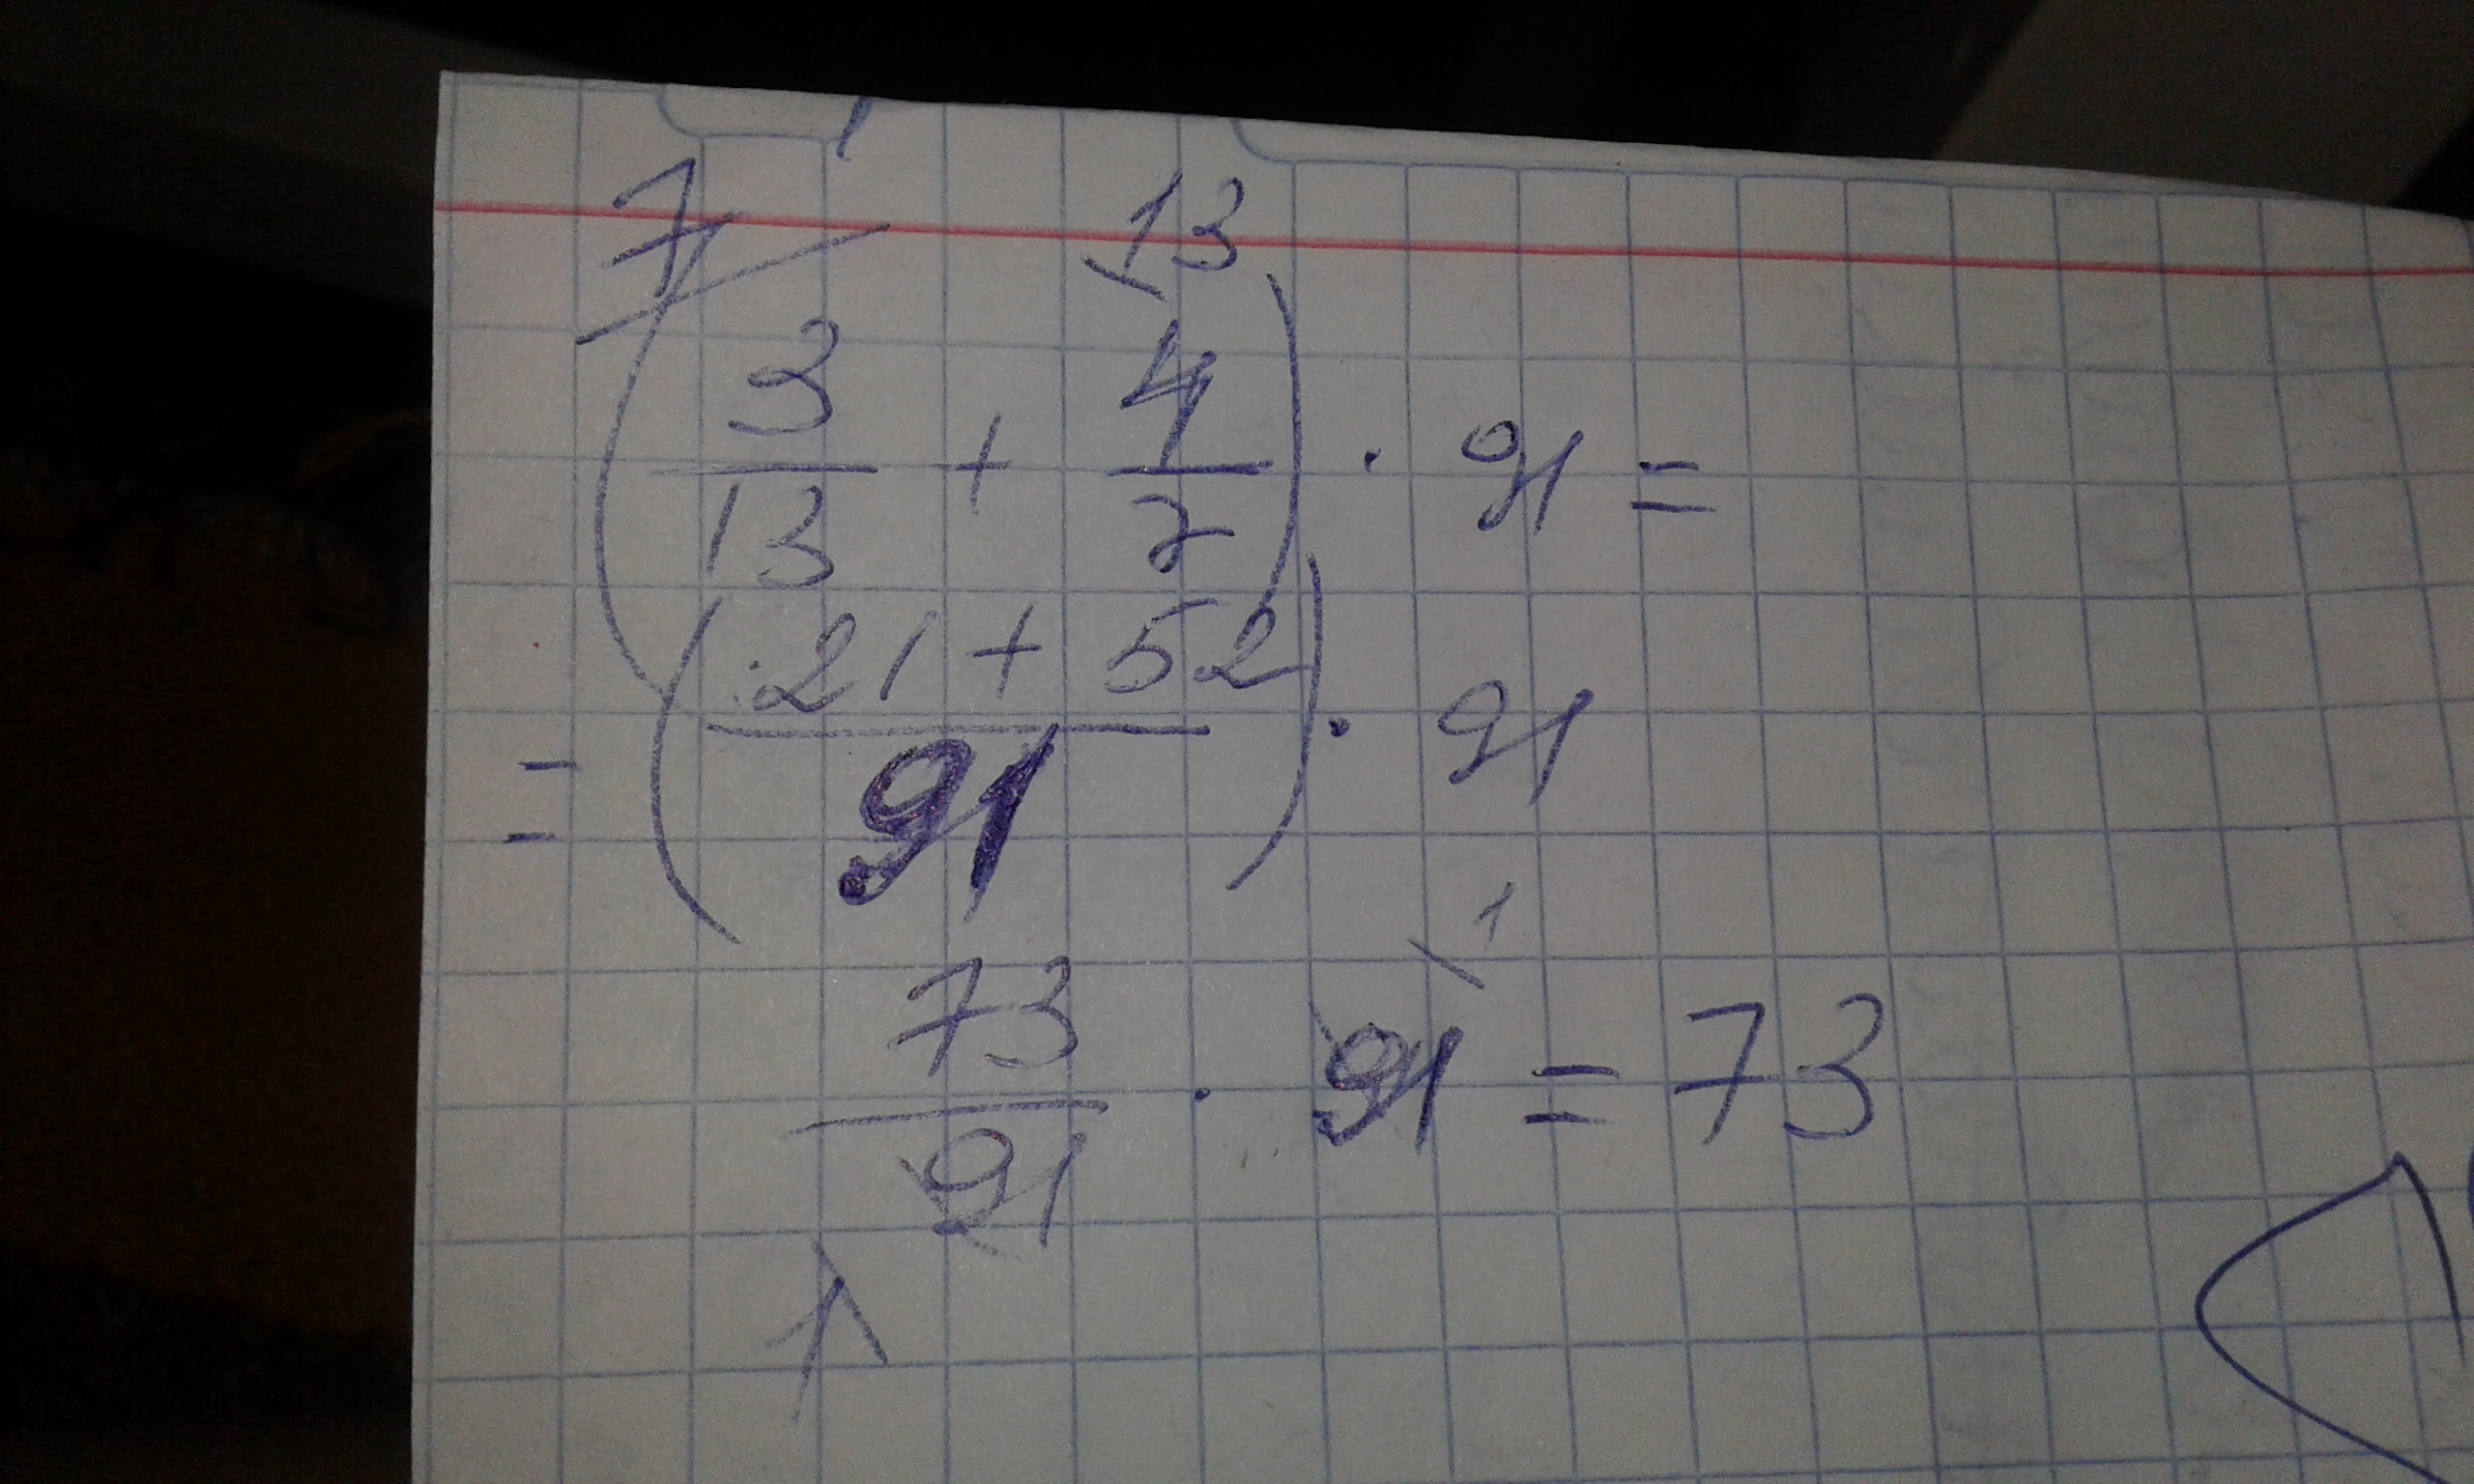 7 13
(3/13 + 4/7) · 91 =
= (21 + 52 / 91) · 91
1
73/91 · 91 = 73
1